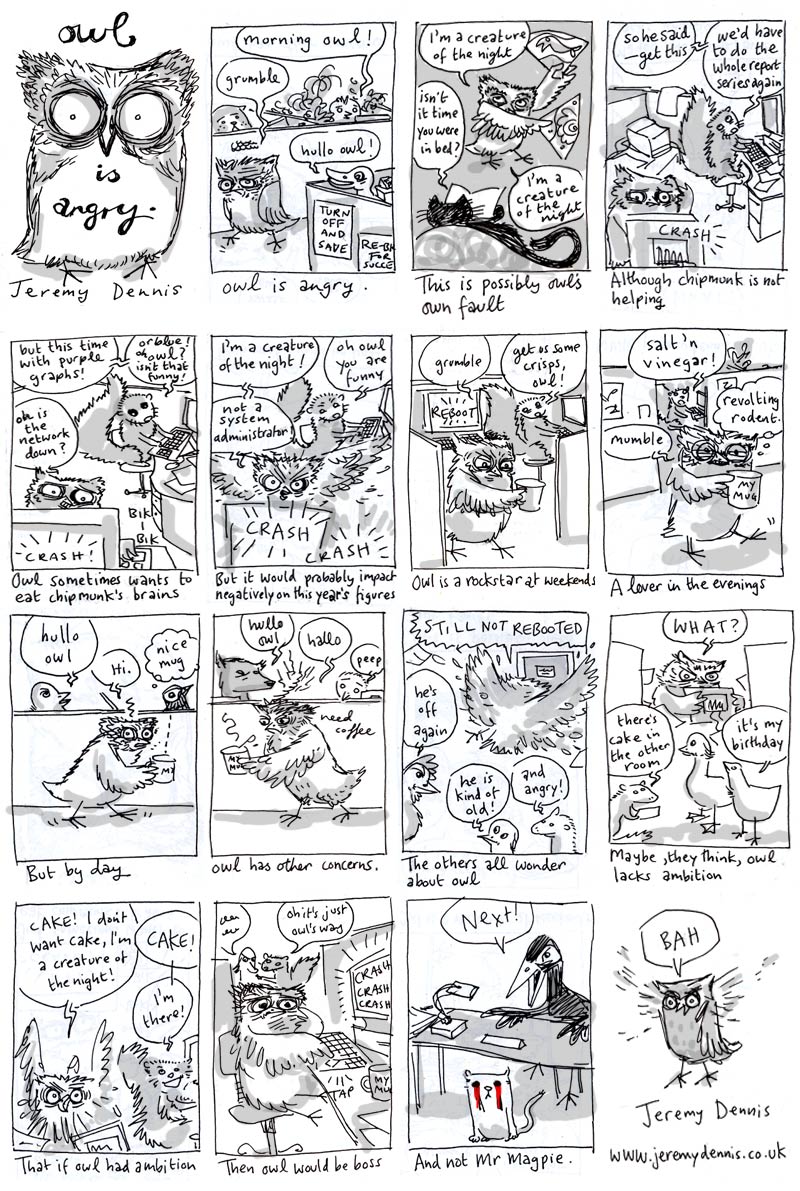 owl
is
angry.
Jeremy Dennis
morning owl!
grumble
hullo owl!
TURN
OFF
AND
SAVE
FOR
owl is angry.
I'm a creature
of the night
isn't
it time
you were
in bed?
I'm a
creature
of the
night
This is possibly owl's
own fault
so he said
-get this
we'd have
to do the
whole report
series again
CRASH
Although chipmunk is not
helping
but this time
with purple
graphs!
or blue!
owl?
isn't that
funny!
oh is
the
network
down?
BIK
BIK
CRASH!
Owl sometimes wants to
eat chipmunk's brains
I'm a creature
of the night!
oh owl
you are
funny
not a
system
administrator!
CRASH
CRASH
But it would probably impact
negatively on this year's figures
grumble
get us some
crisps,
owl!
REBOOT
Owl is a rockstar at weekends
salt'n
vinegar!
revolting
rodent.
mumble
MY
MUG
A lover in the evenings
hullo
owl
Hi.
nice
mug
MY
But by day
hullo
owl
hallo
peep
need
coffee
MY
MUG
owl has other concerns.
STILL NOT REBOOTED
he's
off
again
he is
kind of
old!
and
angry!
The others all wonder
about owl
WHAT?
there's
cake in
the other
room
it's my
birthday
Maybe, they think, owl
lacks ambition
CAKE! I don't
want cake, I'm
a creature of
the night!
CAKE!
I'm
there!
That if owl had ambition
oh it's just
owl's way
CRASH
CRASH
CRASH
TAP
MY
MUG
Then owl would be boss
Next!
And not Mr Magpie.
BAH
Jeremy Dennis
www.jeremydennis.co.uk